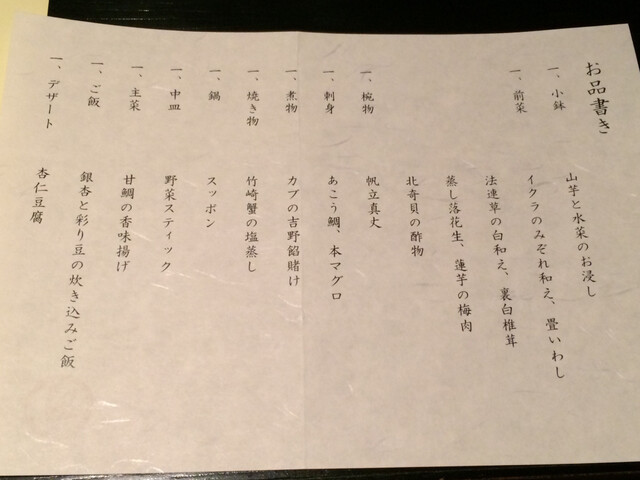 お品書き
一、小鉢　山芋と水菜のお浸し
一、前菜　イクラのみぞれ和え、畳いわし
法連草の白和え、裏白椎茸
蒸し落花生、蓮芋の梅肉
北奇貝の酢物
一、椀物　帆立真丈
一、刺身　あこう鯛、本マグロ
一、煮物　カブの吉野餡賭け
一、焼き物　竹崎蟹の塩蒸し
一、鍋　スッポン
一、中皿　野菜スティック
一、主菜　甘鯛の香味揚げ
一、ご飯　銀杏と彩り豆の炊き込みご飯
一、デザート　杏仁豆腐